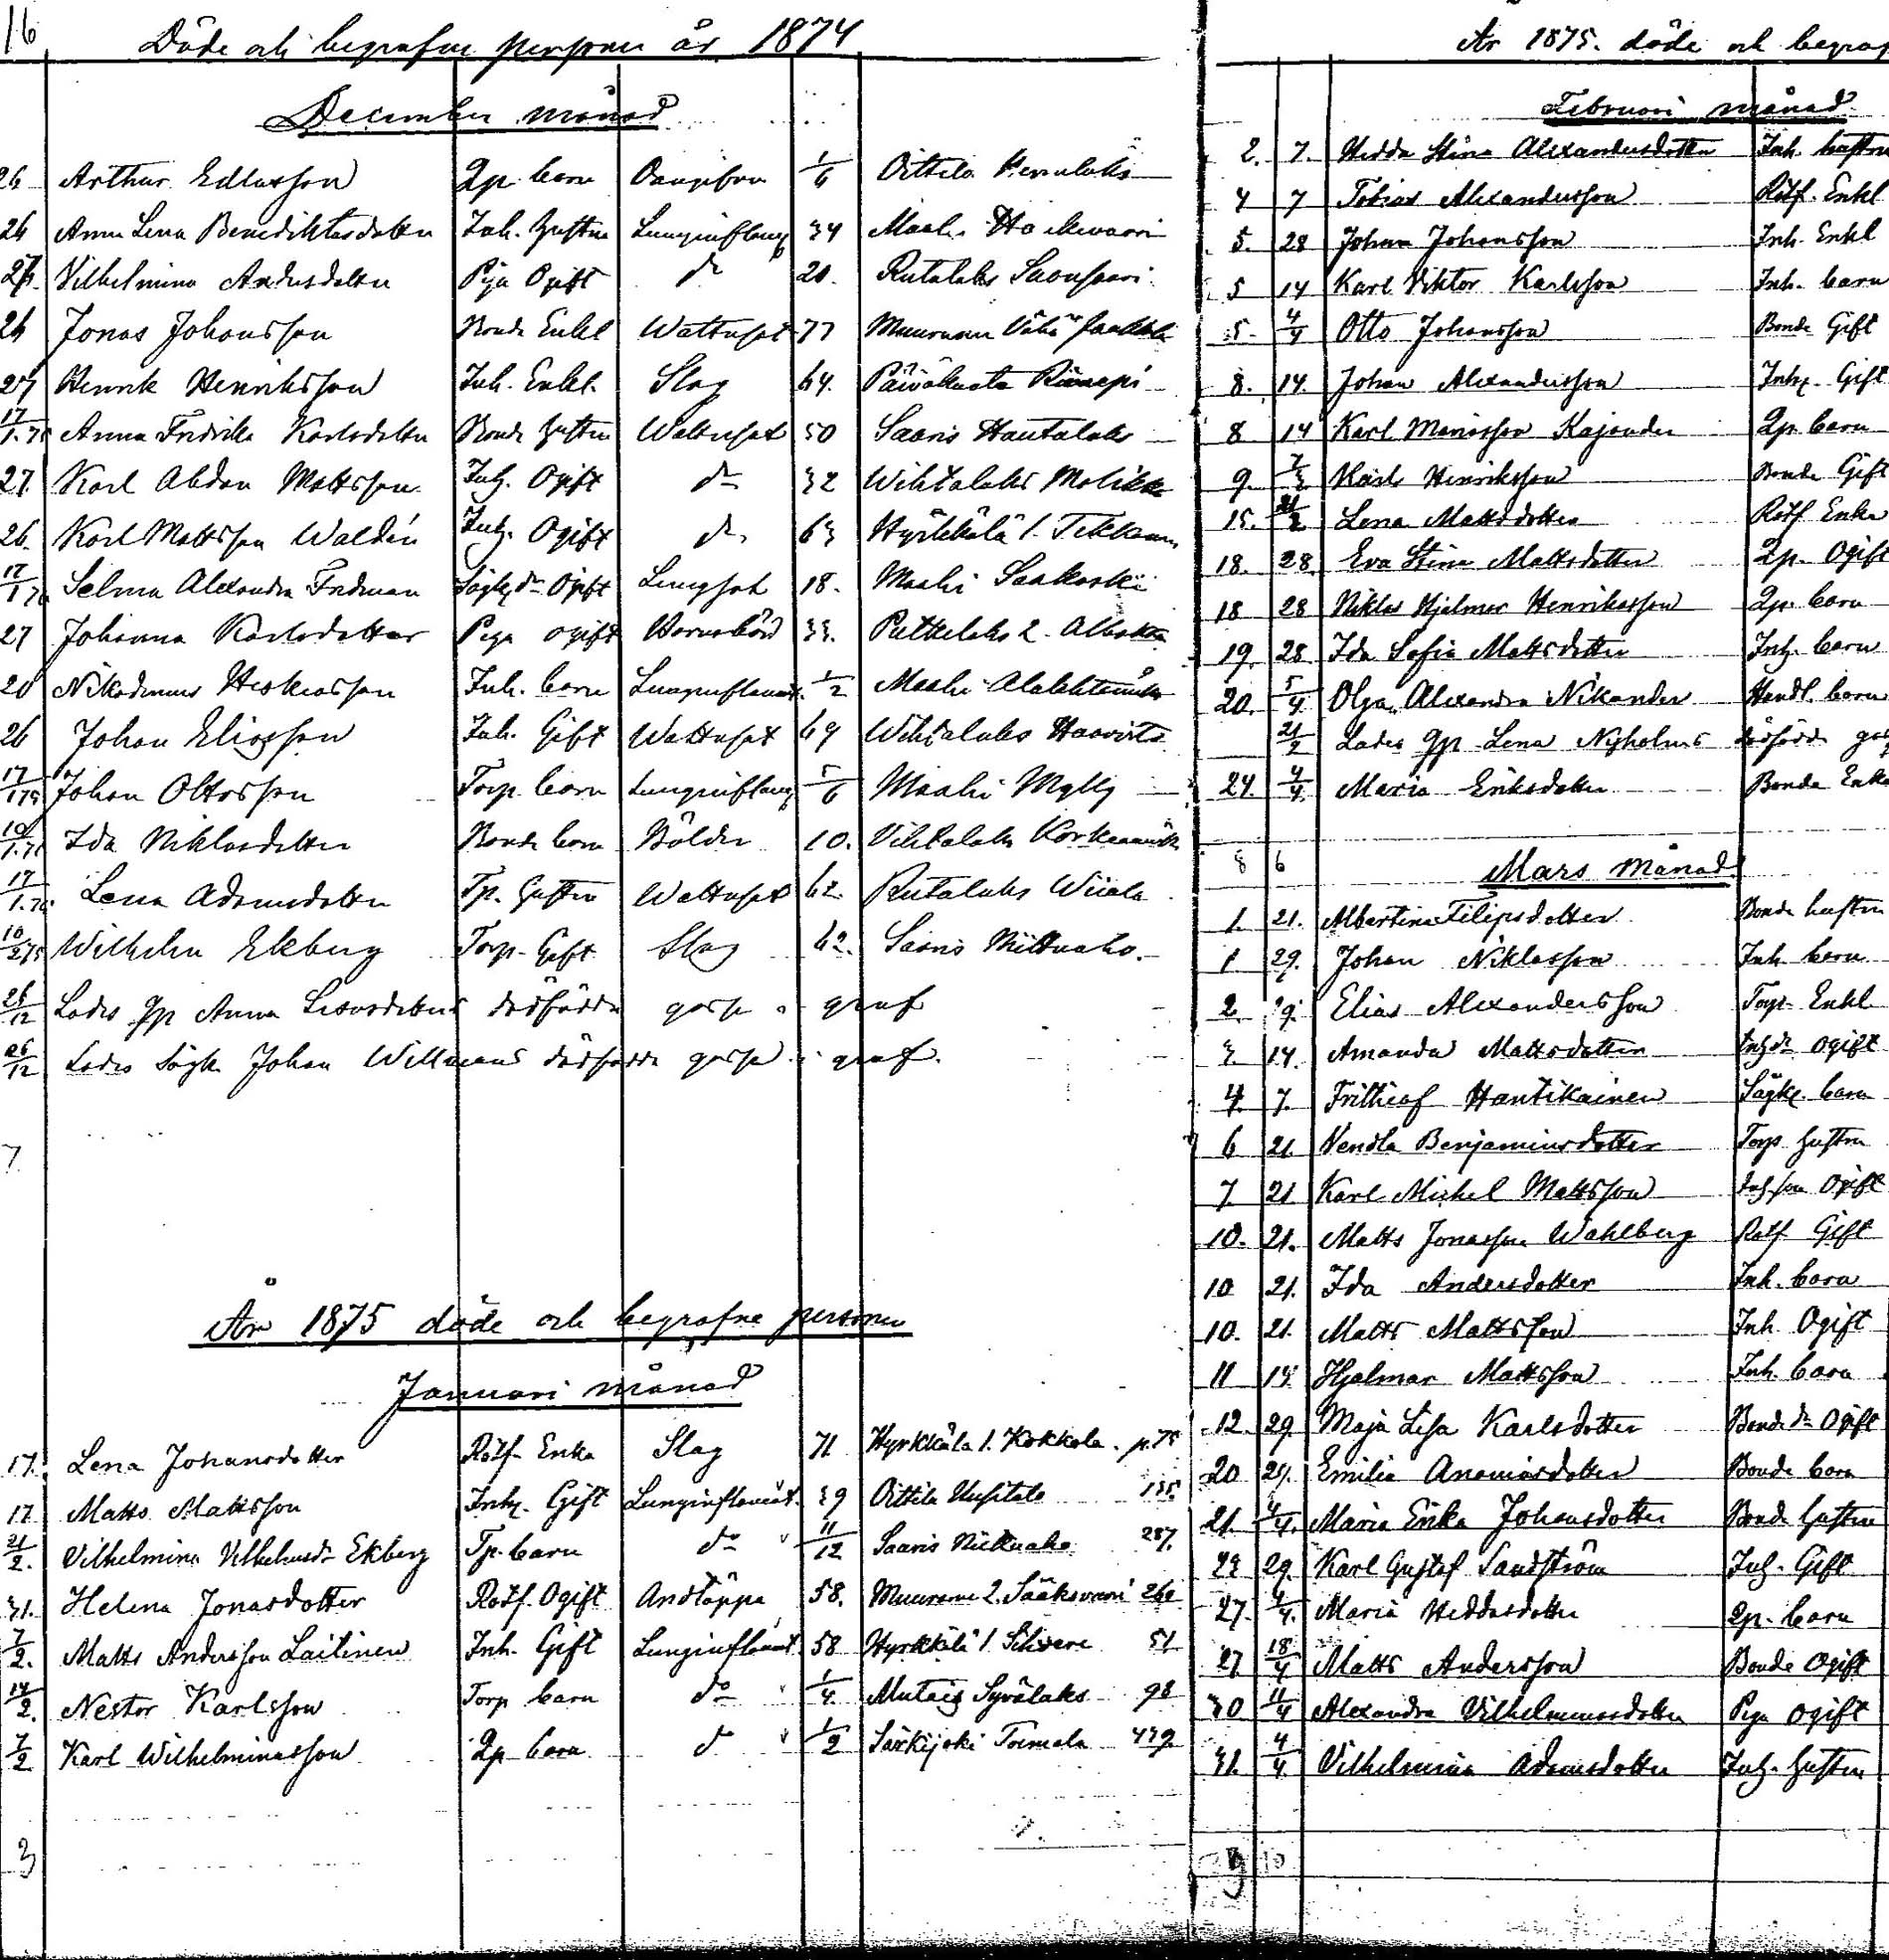 16
Döde och begrafne personer år 1874
December månad
26 Arthur Edlasson Qp. barn Oangifven 1/6 Oittila
26 Anna Lena Benediktsdotter Inh. hustru Lunginflamg 34 Maahi
26. Vilhelmina Andersdotter Piga Ogift do 20. Rutalaks
26 Jonas Johansson Bonde Enkl Wattusot 77 Muurame
27 Henrik Henriksson Inh. Enkl. Slag 64. Päiväkunta
17/1.75 Anna Fredrika Karlsdotter Bonde hustru Wattusot 50 Saaris Hautalaks
27. Karl Abdon Mattsson Inh. Ogift do 32 Wihtalaks
26. Karl Mattsson Waldén Inh. Ogift do 63 Hyrkkälä 1.
17/1 75 Selma Alexandra Ogift Lungsot 18. Maahi Saakoski
27 Johanna Karlsdotter Piga ogift Barnsbörd 33. Putkelaks 2.
20 Nikodemus Inh. barn Lunginflammat. 1/2 Maahi
26 Johan Eliasson Inh. Gift Wattusot 69 Wihtalaks
17/1 75 Johan Ottosson Torp. barn Lunginflamg 5/6 Maahi Mylly
10/1.75 Ida Niklasdotter Bonde barn Bölder 10. Vihtalaks
17/1.75 Lena Adamsdotter Tp. hustru Wattusot 62. Rutalaks Wiiala
10/2 75 Wilhelm Ekberg Torp. Gift Slag 62. Saaris Niittuaho.
26/12 Lades qp Anna dödfödde gosse i graf
26/12 Lades Johan Willmans dödfödde gosse i graf.
7
År 1875 döde och begrafne personer
Januari månad
17. Lena Johansdotter Rotf. Enka Slag 71 Hyrkkälä 1. Kokkola. p. 75
17 Matts Mattsson Inh. Gift Lunginflammat. 39 Oittila Uusitalo 135.
21/2. Vilhelmina Vilhelmsdr Ekberg Tp. barn do " 11/12 Saaris Niittuaho 287.
31. Helena Jonasdotter Rotf. Ogift Andtäppa 58. Muurame 2. Sääksvuori 260
7/2. Matts Andersson Laitinen Inh. Gift Lunginflammat 58 Hyrkkälä 1. 51
14/2. Nestor Karlsson Torp barn do " 1/4 Mutaig Syvälaks 98
7/2 Karl Wilhelminasson Qp barn do " 1/2 Särkijoki Toimela 439.
3
År 1875. döde och begraf
Februari månad
2. 7. Hedda Stina Alexandersdotter Inh. hustru
4 7 Tobias Alexandersson Rotf. Enkl
5. 28 Johan Johansson Inh. Enkl
5 14 Karl Viktor Karlsson Inh. barn
5. 4/4 Otto Johansson Bonde Gift
8. 14. Johan Alexandersson Inh. Gift
8 14 Karl Kajander Qp. barn
9. 7/3 Karl Henriksson Bonde Gift
15. 21/2 Lena Mattsdotter Rotf Enka
18. 28. Eva Stina Mattsdotter Qp. Ogift
18 28 Niklas Hjalmar Henriksson Qp. barn
19. 28 Ida Sofia Mattsdotter Inh. barn
20. 5/4. Olga Alexandra Nikander Handl. barn
21/2 Lades qp Lena Nyholms dödfödde
24. 4/4. Maria Eriksdotter Bonde Enka
8 6
Mars månad
1. 21. Albertina Filipsdotter Bonde hustru
1 29. Johan Niklasson Inh. barn
2. 29. Elias Alexandersson Torp. Enkl
3. 14. Amanda Mattsdotter Inh dr ogift
4. 7. Frithiof Hantikainen barn
6 21. Vendla Benjaminsdotter Torp hustru
7 21 Karl Mickel Mattsson Inh. son Ogift
10. 21. Matts Jonasson Wahlberg Rotf Gift
10 21. Ida Andersdotter Inh. barn
10. 21. Matts Mattsson Inh Ogift
11 14 Hjalmar Mattsson Inh. barn
12. 29. Maja Lisa Karlsdotter Bonde dr Ogift
20 29. Emilia Ananiasdotter Bonde barn
21. 4/4. Maria Erika Johansdotter Bonde hustru
23 29. Karl Gustaf Sandström Inh. Gift
27. 4/4. Maria Heddasdotter Qp. barn
27 18/4 Matts Andersson Bonde Ogift
30 11/4 Alexandra Vilhelminasdotter Piga ogift
31. 4/4 Vilhelmina Adamsdotter Inh. hustru